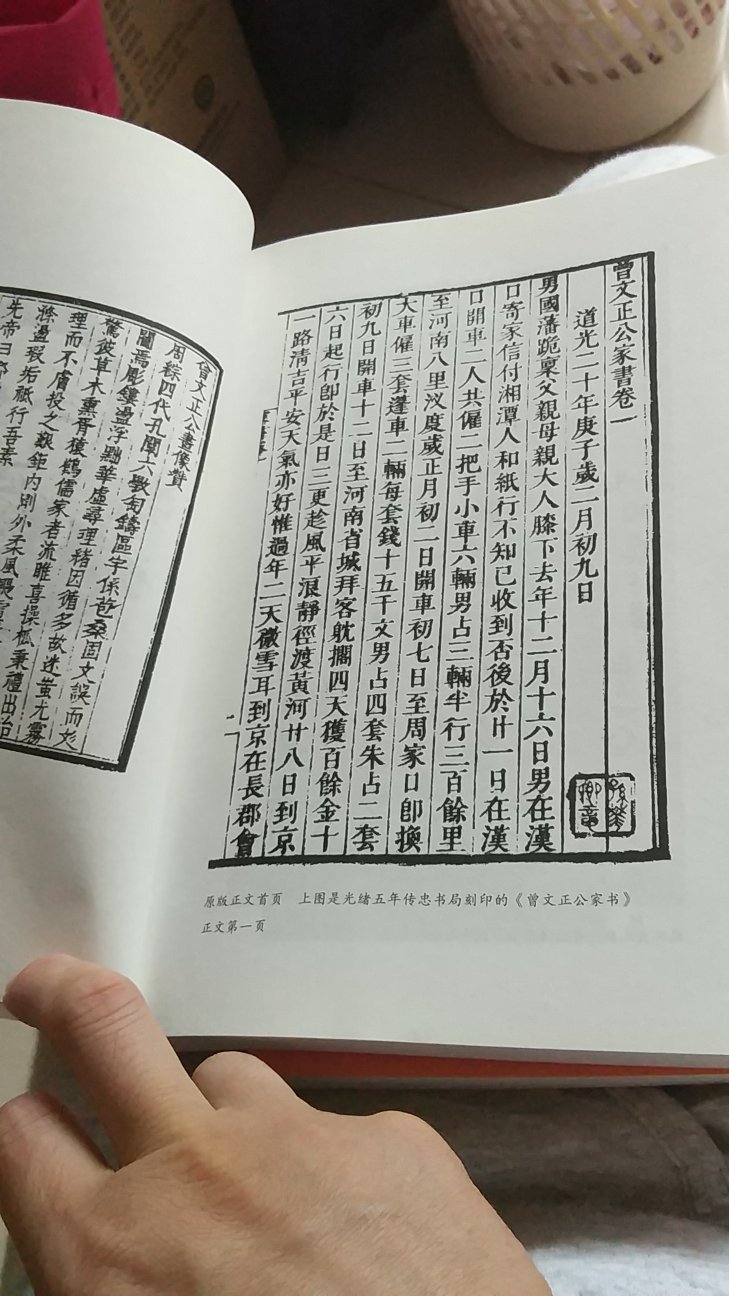 曾文正公家書卷一
道光二十年庚子歲二月初九日
男國藩跪稟父親母親大人膝下去年十二月十六日男在漢
口寄家信付湘潭人和紙行不知已收到否後於廿一日在漢
口開車二人共僱二把手小車六輛男占三輛半行三百餘里
至河南八里汊度歲正月初二日開車初七日至周家口即換
大車僱三套篷車二輛每套錢十五千文男占四套朱占二套
初九日開車十二日至河南省城拜客耽擱四天獲百餘金十
六日起行即於是日三更趁風平浪靜徑渡黃河廿八日到京
一路清吉平安天氣亦好惟過年二天微雪耳到京在長郡會
原版正文首页 上图是光绪五年传忠书局刻印的《曾文正公家书》
正文第一页
曾文正公畫像贊
周綜四代孔闡六 鑄區宇係 桑固文 而
焉彫鏤盪浮黜華虛尋理緒因循多故迷蚩尤霧
驚彼草木熏胥猿鶴儒家者流雎喜操觚秉禮出治
理而不膚投之艱鉅內剛外柔風
滌盪瑕垢祇行吾素
先帝曰